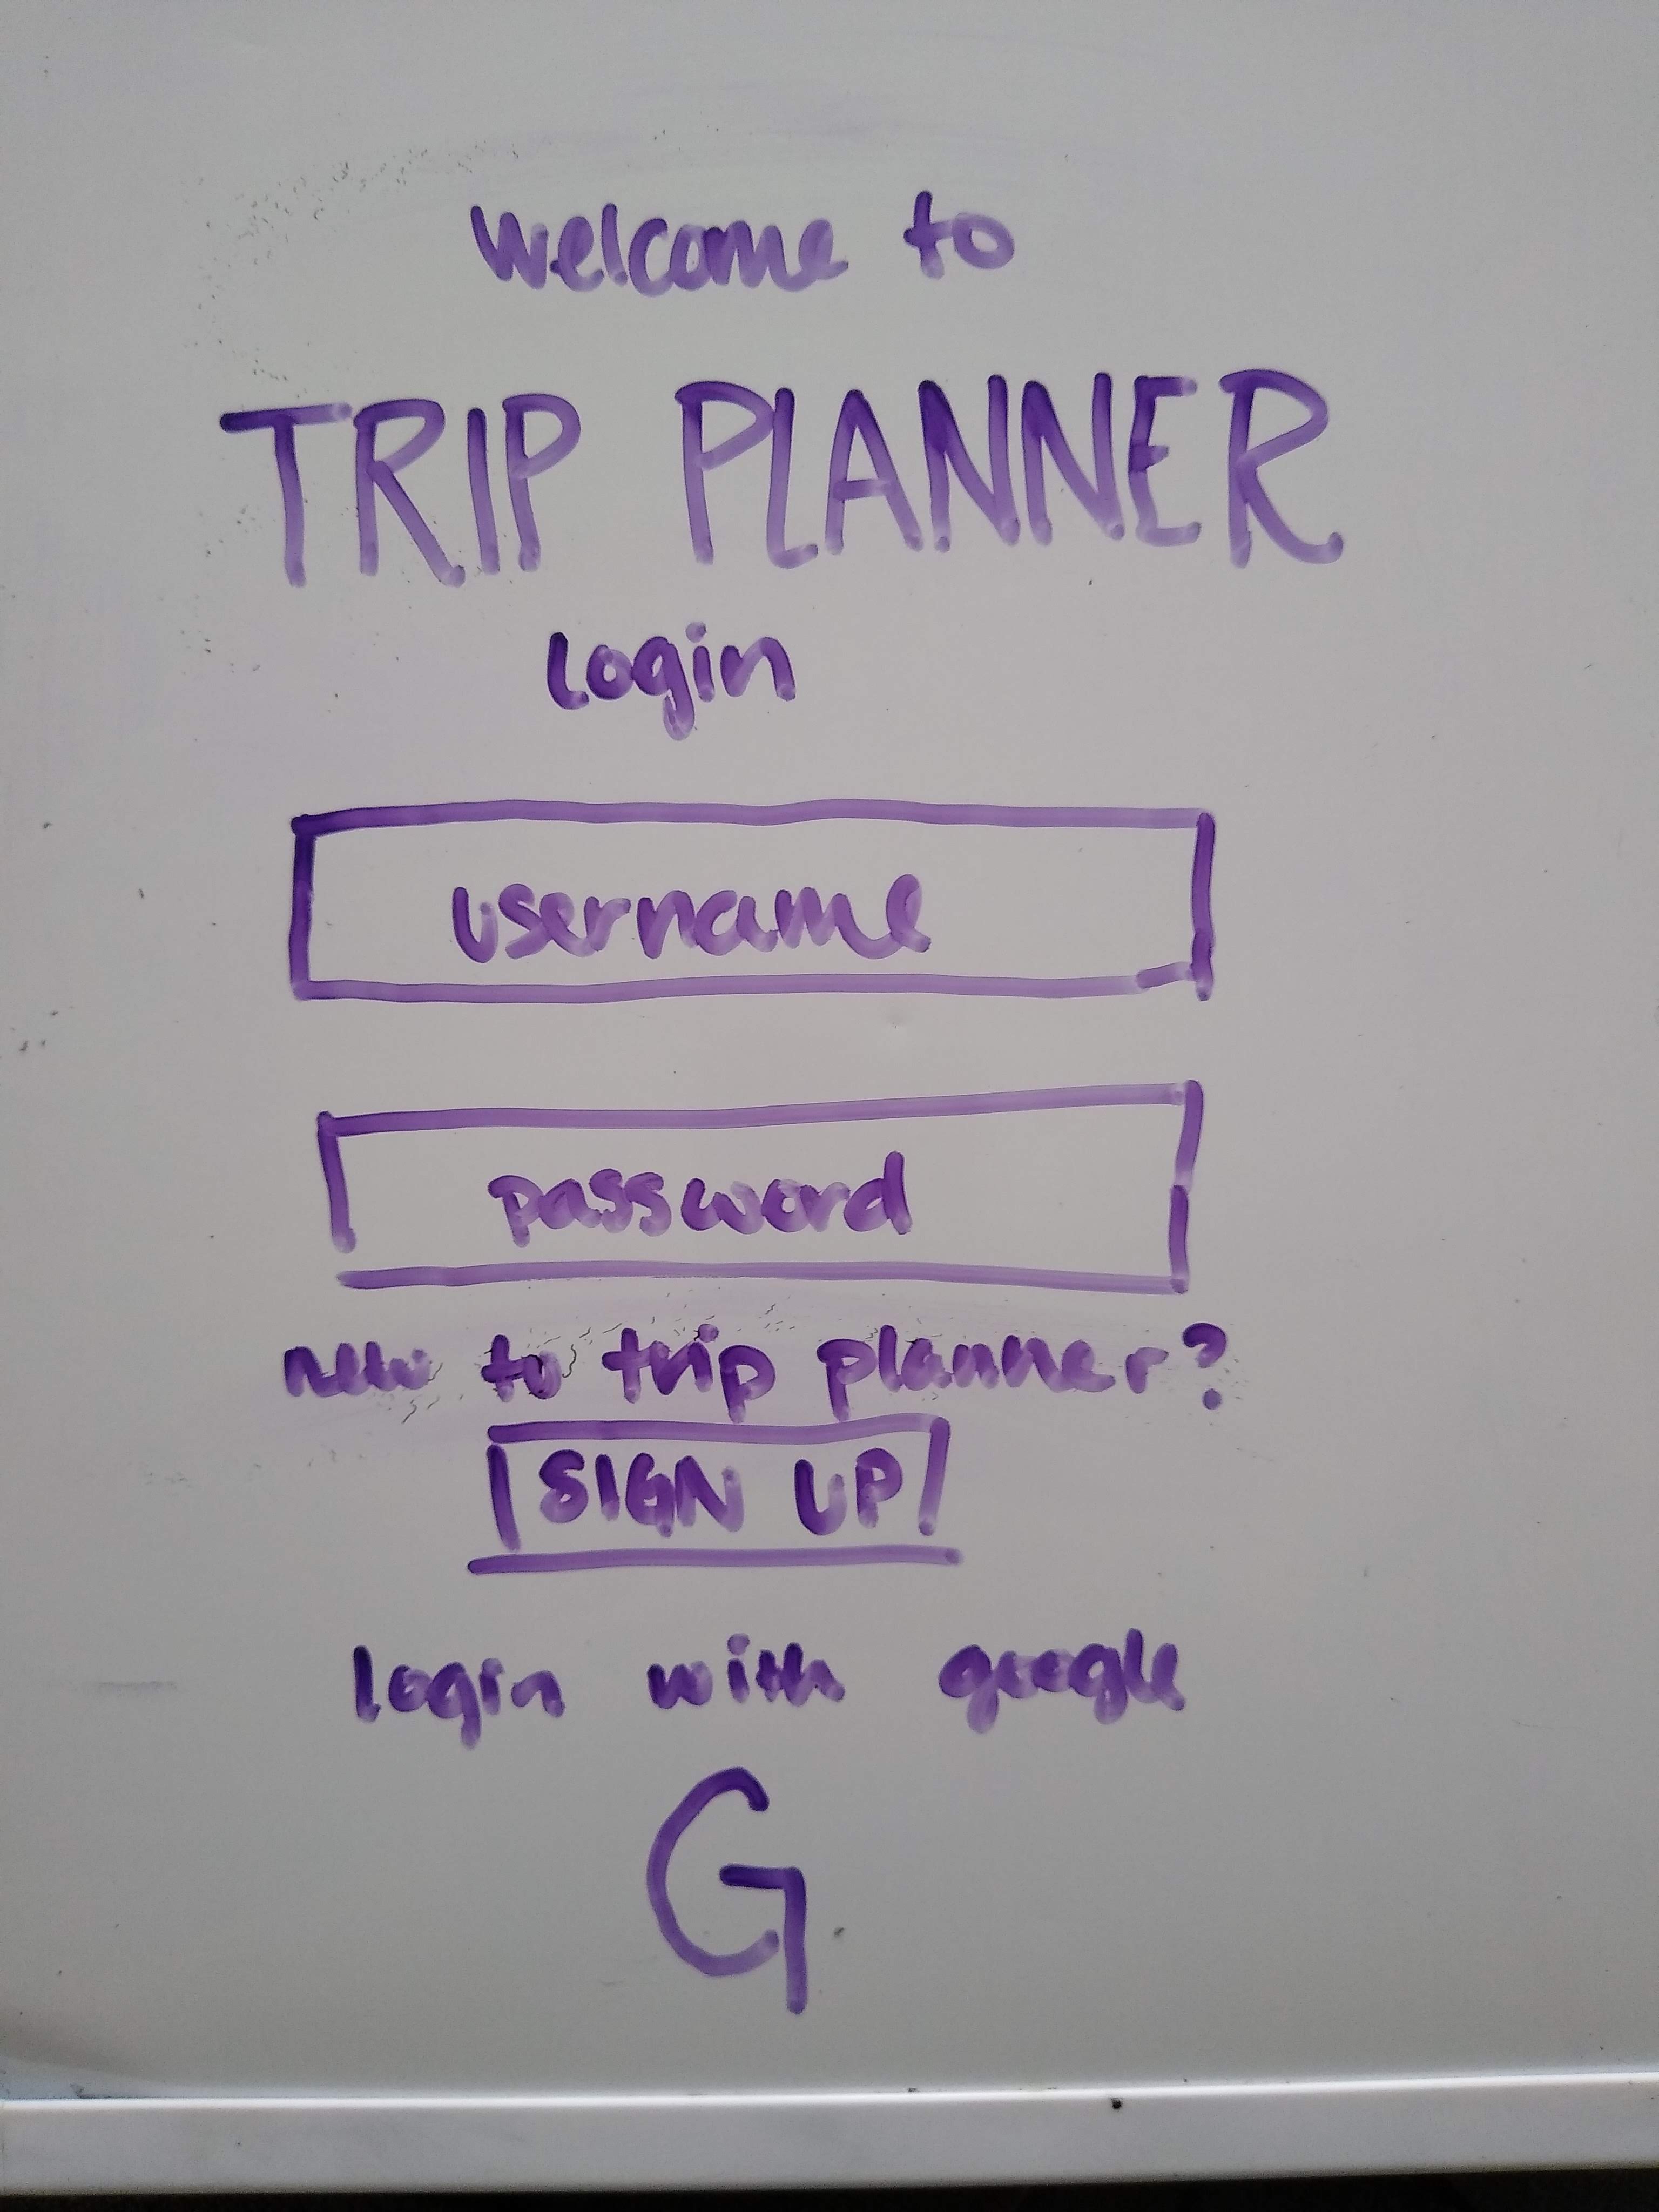 welcome to
TRIP PLANNER
login
username
password
new to trip planner?
SIGN UP
login with google
G